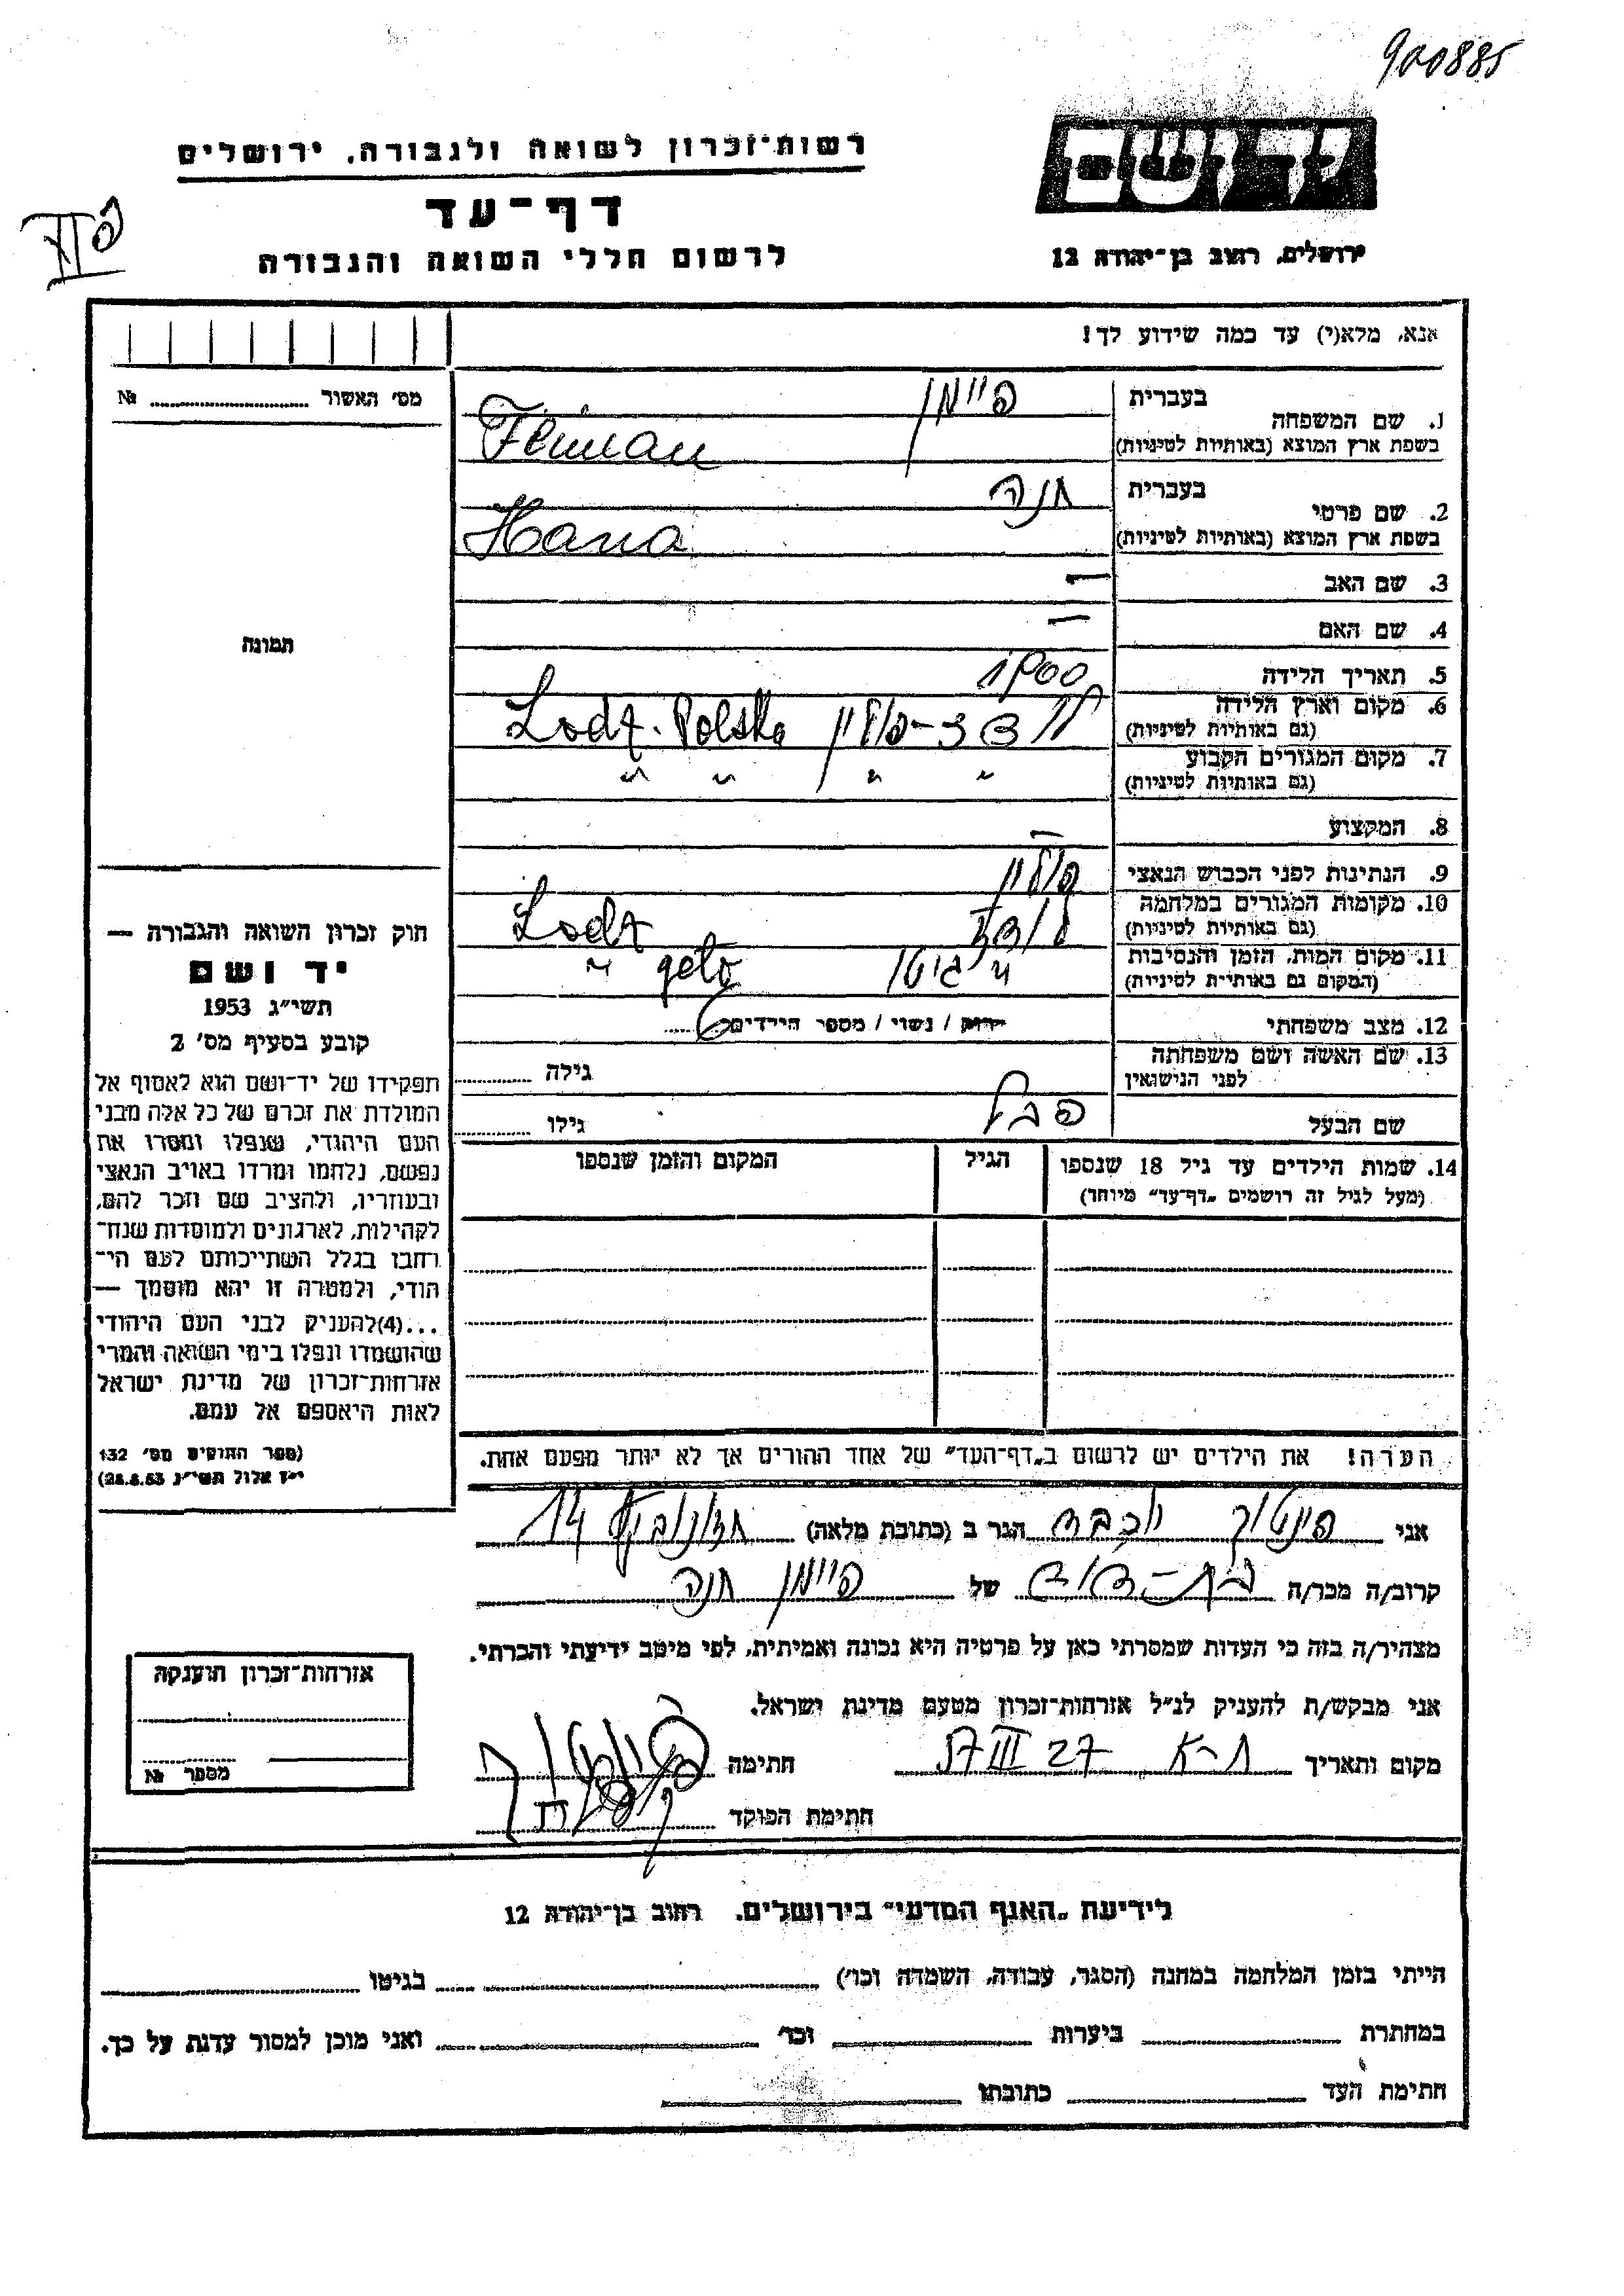 900885
יד ושם
רשות־זכרון לשואה ולגבורה, ירושלים
דף־עד
לרשום חללי השואה והגבורה
ירושלים, רחוב בן־יהודה 12
אנא, מלא(י) עד כמה שידוע לך!
מס׳ האשור № ........
1. שם המשפחה
בעברית פיימן
בשפת ארץ המוצא (באותיות לטיניות) Feiman
2. שם פרטי
בעברית חנה
בשפת ארץ המוצא (באותיות לטיניות) Hana
3. שם האב —
4. שם האם —
5. תאריך הלידה 1900
6. מקום וארץ הלידה
(גם באותיות לטיניות) לודז-פולין Lodz. Polska
7. מקום המגורים הקבוע
(גם באותיות לטיניות) " " " "
8. המקצוע —
9. הנתינות לפני הכבוש הנאצי פולין
10. מקומות המגורים במלחמה
(גם באותיות לטיניות) לודז Lodz
11. מקום המות, הזמן והנסיבות
(המקום גם באותיות לטיניות) " גיטו " geto
12. מצב משפחתי רווק / נשוי / מספר הילדים 6
13. שם האשה ושם משפחתה
לפני הנישואין גילה ........
שם הבעל גילו ........
14. שמות הילדים עד גיל 18 שנספו
(מעל לגיל זה רושמים „דף־עד״ מיוחד)
הגיל
המקום והזמן שנספו
הערה! את הילדים יש לרשום ב„דף־העד״ של אחד ההורים אך לא יותר מפעם אחת.
תמונה
חוק זכרון השואה והגבורה —
יד ושם
תשי״ג 1953
קובע בסעיף מס׳ 2
תפקידו של יד־ושם הוא לאסוף אל
המולדת את זכרם של כל אלה מבני
העם היהודי, שנפלו ומסרו את
נפשם, נלחמו ומרדו באויב הנאצי
ובעוזריו, ולהציב שם וזכר להם,
לקהילות, לארגונים ולמוסדות שנח־
רחבו בגלל השתייכותם לעם הי־
הודי, ולמטרה זו יהא מוסמך —
...(4)להעניק לבני העם היהודי
שהושמדו ונפלו בימי השואה והמרי
אזרחות־זכרון של מדינת ישראל
לאות היאספם אל עמם.
(ספר החוקים מס׳ 132
י״ז אלול תשי״ג 28.8.53)
אני פינטוך יוכבד הגר ב (כתובת מלאה) 14
קרוב/ה מכר/ה בת-דוד של פיימן חנה
מצהיר/ה בזה כי העדות שמסרתי כאן על פרטיה היא נכונה ואמיתית, לפי מיטב ידיעתי והכרתי.
אני מבקש/ת להעניק לנ״ל אזרחות־זכרון מטעם מדינת ישראל.
מקום ותאריך ת-א 27 III 57 חתימה
חתימת הפוקד
אזרחות־זכרון הוענקה
מספר №
לידיעת „האגף המדעי״ בירושלים, רחוב בן־יהודה 12
הייתי בזמן המלחמה במחנה (הסגר, עבודה, השמדה וכו׳) ........ בגיטו ........
במחתרת ........ ביערות ........ וכו׳ ........ ואני מוכן למסור עדות על כך.
חתימת העד ........ כתובתו ........